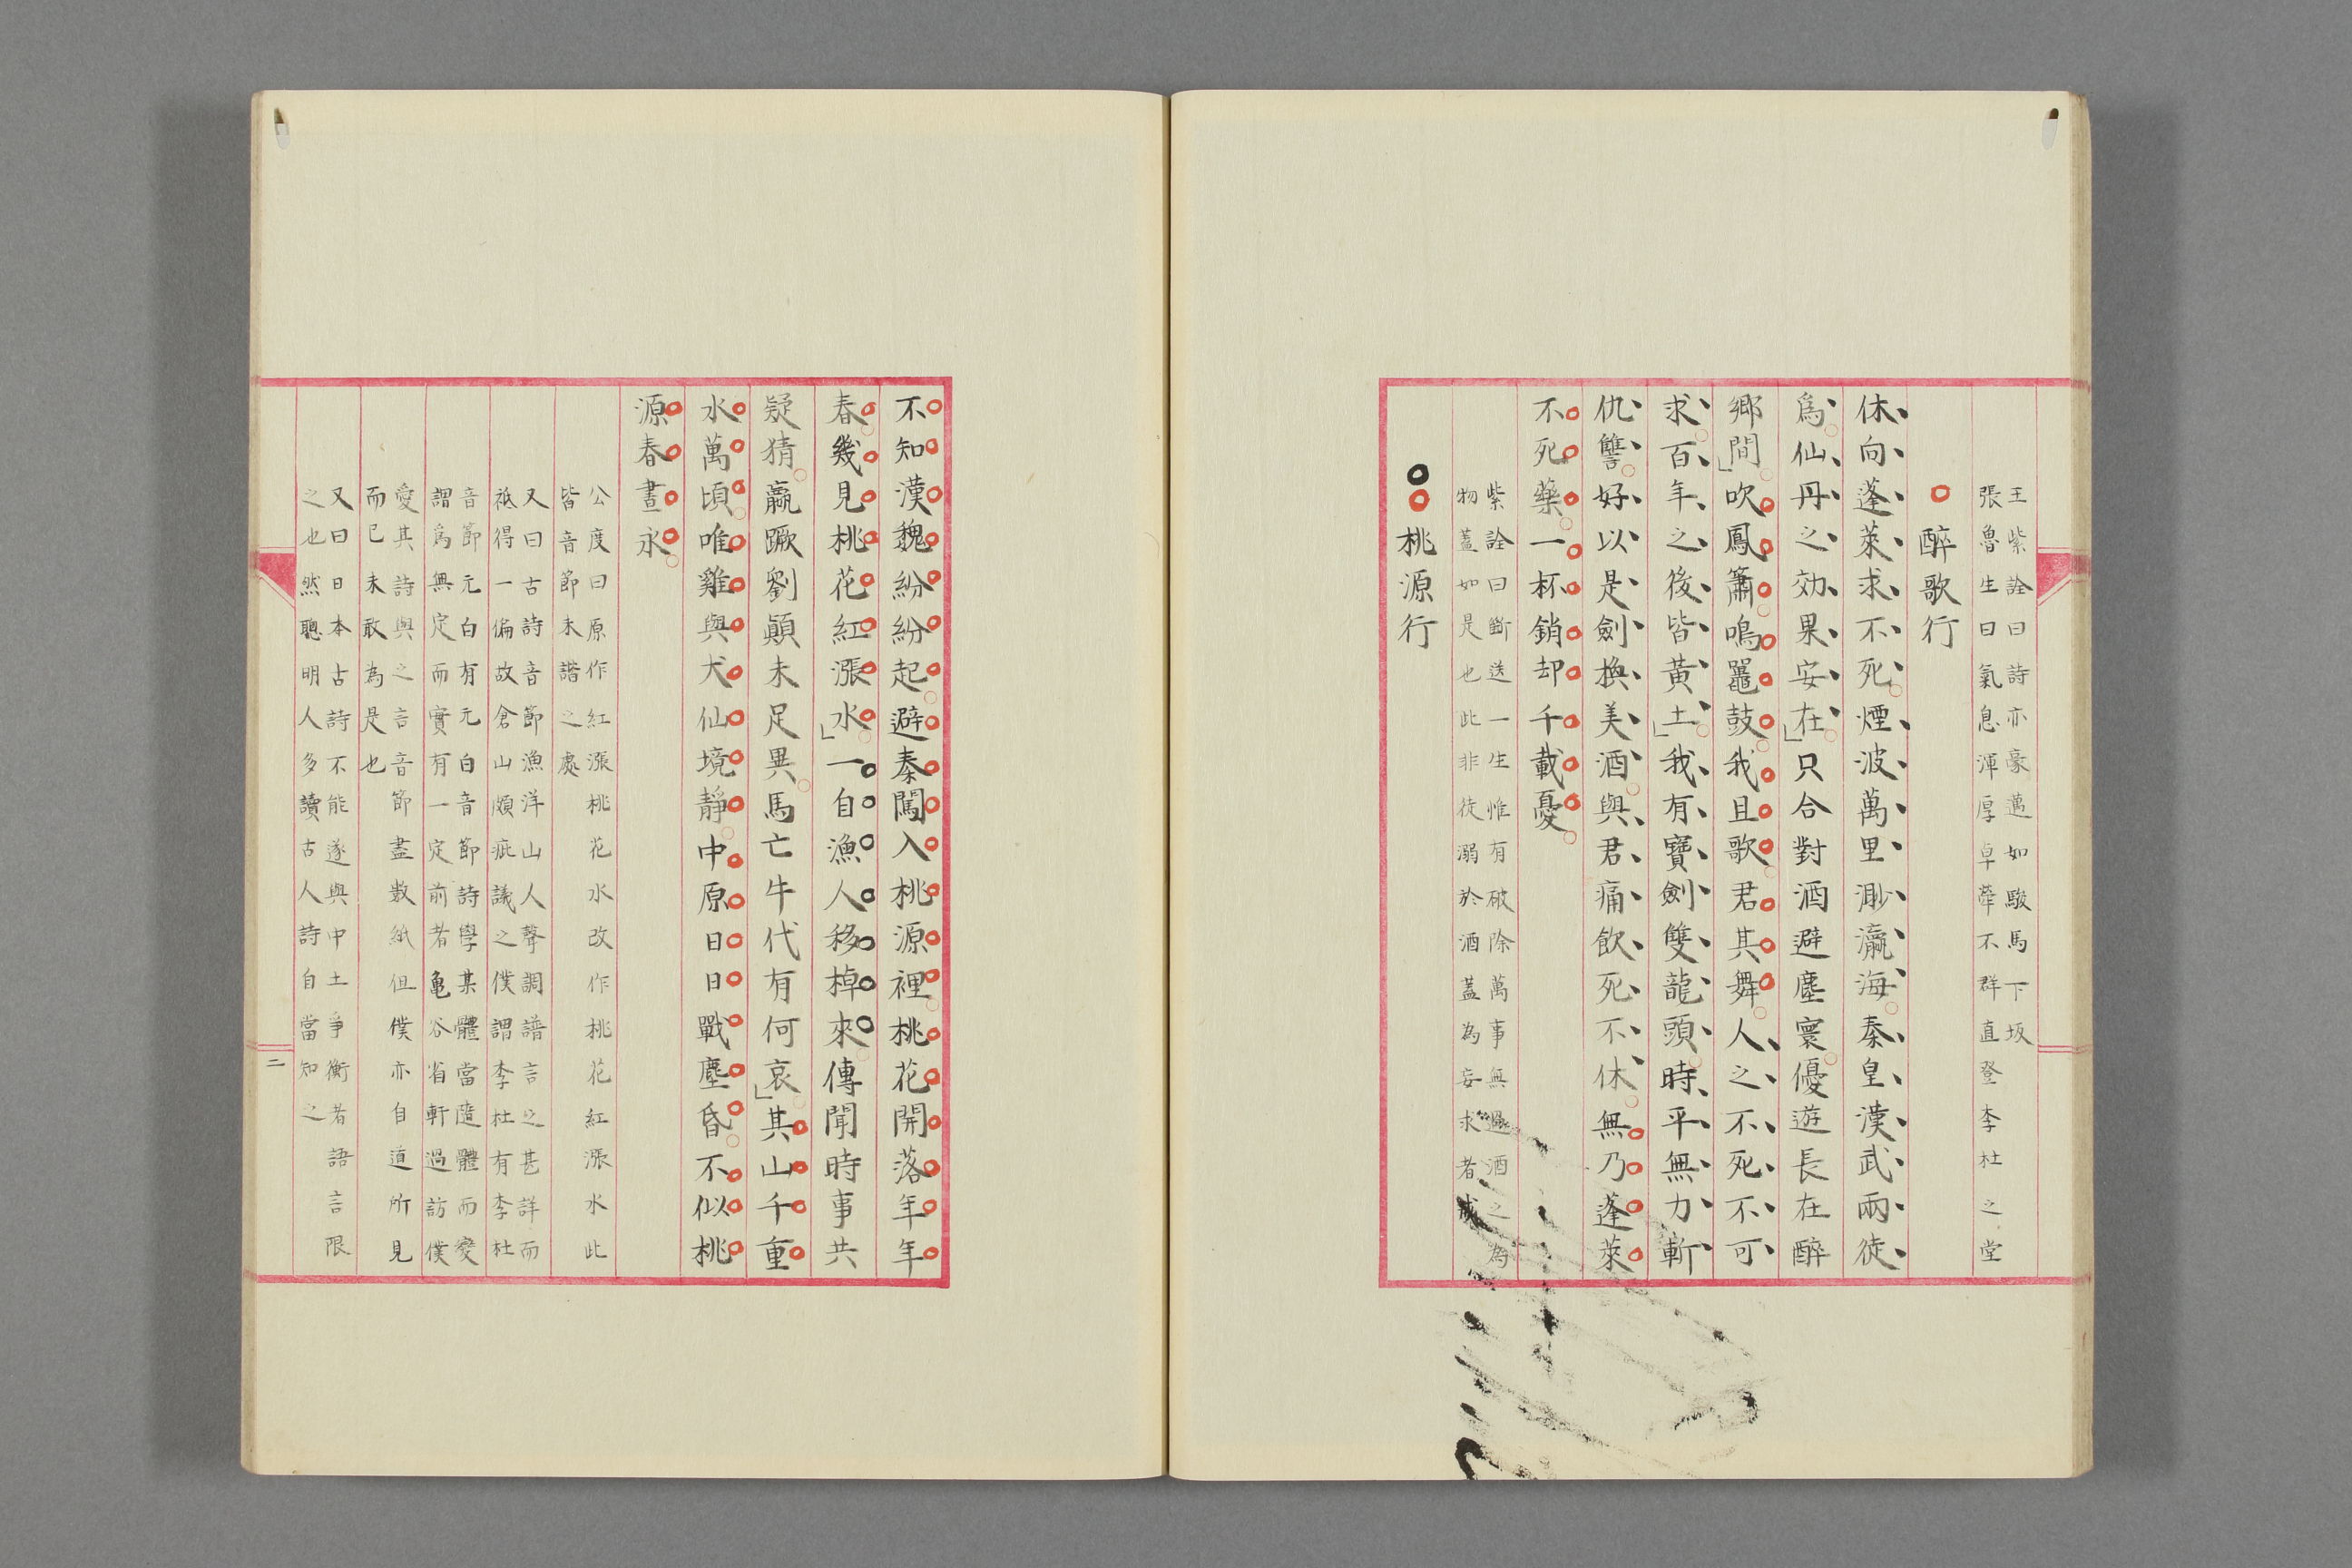 王紫詮曰詩亦豪邁如駿馬下坂
張魯生曰氣息渾厚卓犖不群直登李杜之堂
醉歌行
休向蓬萊求不死煙波萬里渺瀛海秦皇漢武兩徒
為仙丹之効果安在只合對酒避塵寰優遊長在醉
鄉間吹鳳簫鳴鼉鼓我且歌君其舞人之不死不可
求百年之後皆黃土我有寶劍雙龍頭時平無力斬
仇讐好以是劍換美酒與君痛飲死不休無乃蓬萊
不死藥一杯銷却千載憂
紫詮曰斷送一生惟有破除萬事無過酒之為
物蓋如是也此非徒溺於酒蓋為妄求者戒
桃源行
不知漢魏紛紛起避秦闖入桃源裡桃花開落年年
春幾見桃花紅漲水一自漁人移棹來傳聞時事共
疑猜嬴蹶劉顚未足異馬亡牛代有何哀其山千重
水萬頃唯雞與犬仙境靜中原日日戰塵昏不似桃
源春晝永
公度曰原作紅漲桃花水改作桃花紅漲水此
皆音節未諧之處
又曰古詩音節漁洋山人聲調譜言之甚詳而
祗得一偏故倉山頗疵議之僕謂李杜有李杜
音節元白有元白音節詩學某體當隨體而變
謂爲無定而實有一定前者亀谷省軒過訪僕
愛其詩與之言音節盡數紙但僕亦自道所見
而已未敢為是也
又曰日本古詩不能遂與中土爭衡者語言限
之也然聰明人多讀古人詩自當知之
二